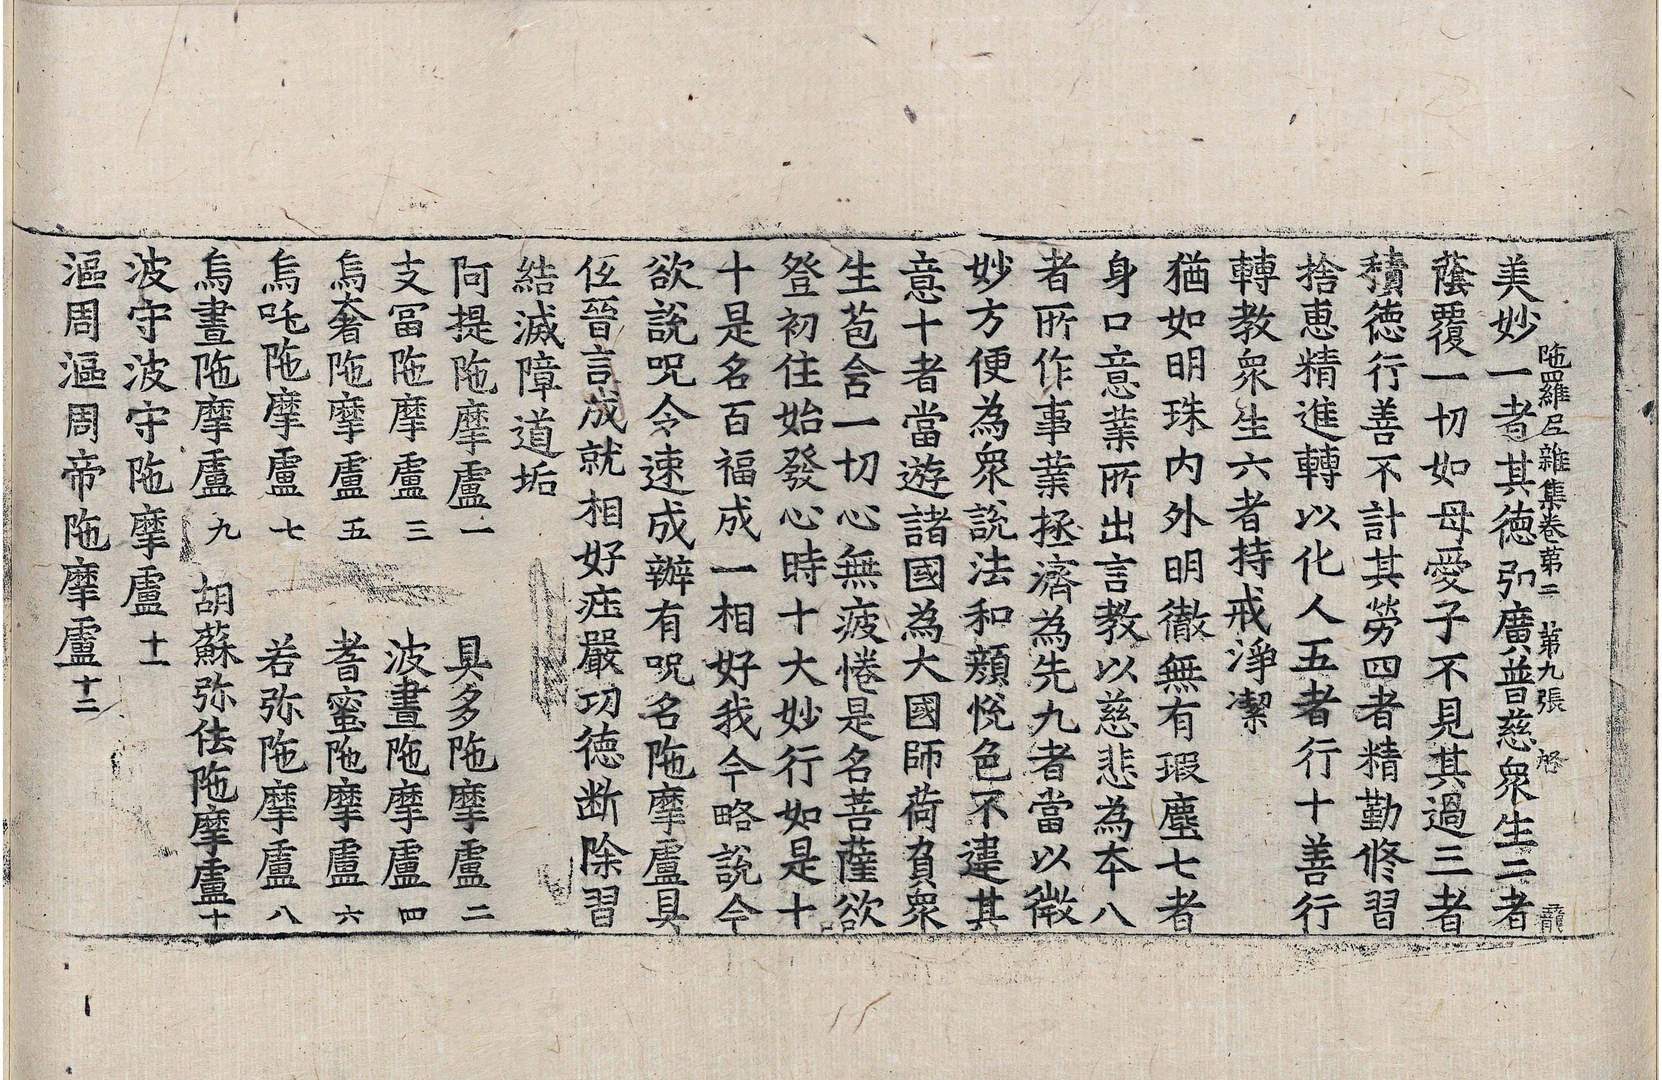 陁羅尼雜集卷第二　第九張　啓
美妙一者其德弘廣普慈衆生二者
蔭覆一切如母愛子不見其過三者
積德行善不計其勞四者精勤修習
捨恵精進轉以化人五者行十善行
轉教衆生六者持戒淨潔
猶如明珠内外明徹無有瑕塵七者
身口意業所出言教以慈悲為本八
者所作事業拯濟為先九者當以微
妙方便為衆說法和顔悅色不違其
意十者當遊諸國為大國師荷負衆
生苞含一切心無疲惓是名菩薩欲
登初住始發心時十大妙行如是十
十是名百福成一相好我今略說今
欲說呪令速成辦有呪名陁摩盧具
伍晉言成就相好庄嚴功德断除習
結滅障道垢
阿提陁摩盧一　具多陁摩盧二
支冨陁摩盧三　波晝陁摩盧四
烏奢陁摩盧五　耆蜜陁摩盧六
烏吒陁摩盧七　若弥陁摩盧八
烏晝陁摩盧九　胡蘇弥佉陁摩盧十
波守波守陁摩盧十一
漚周漚周帝陁摩盧十二